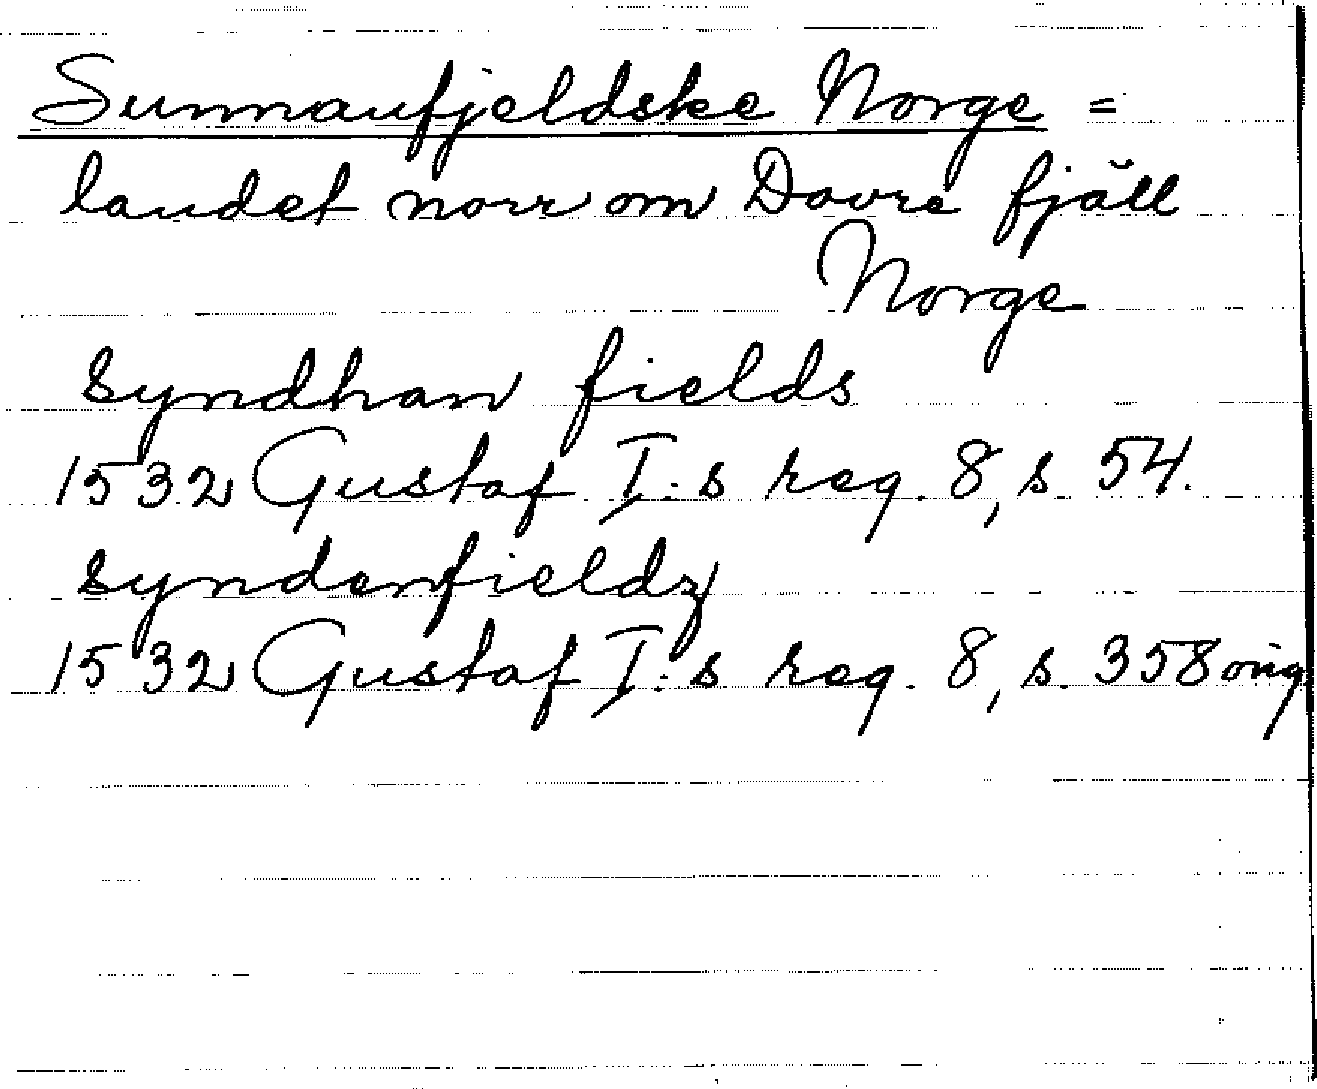 Sunnanfjeldske Norge =
landet norr om Dovre fjäll
Norge
Syndhan fields
1532 Gustaf I:s reg. 8, s. 54.
Syndenfieldz
1532 Gustaf I:s reg. 8, s. 358 orig.